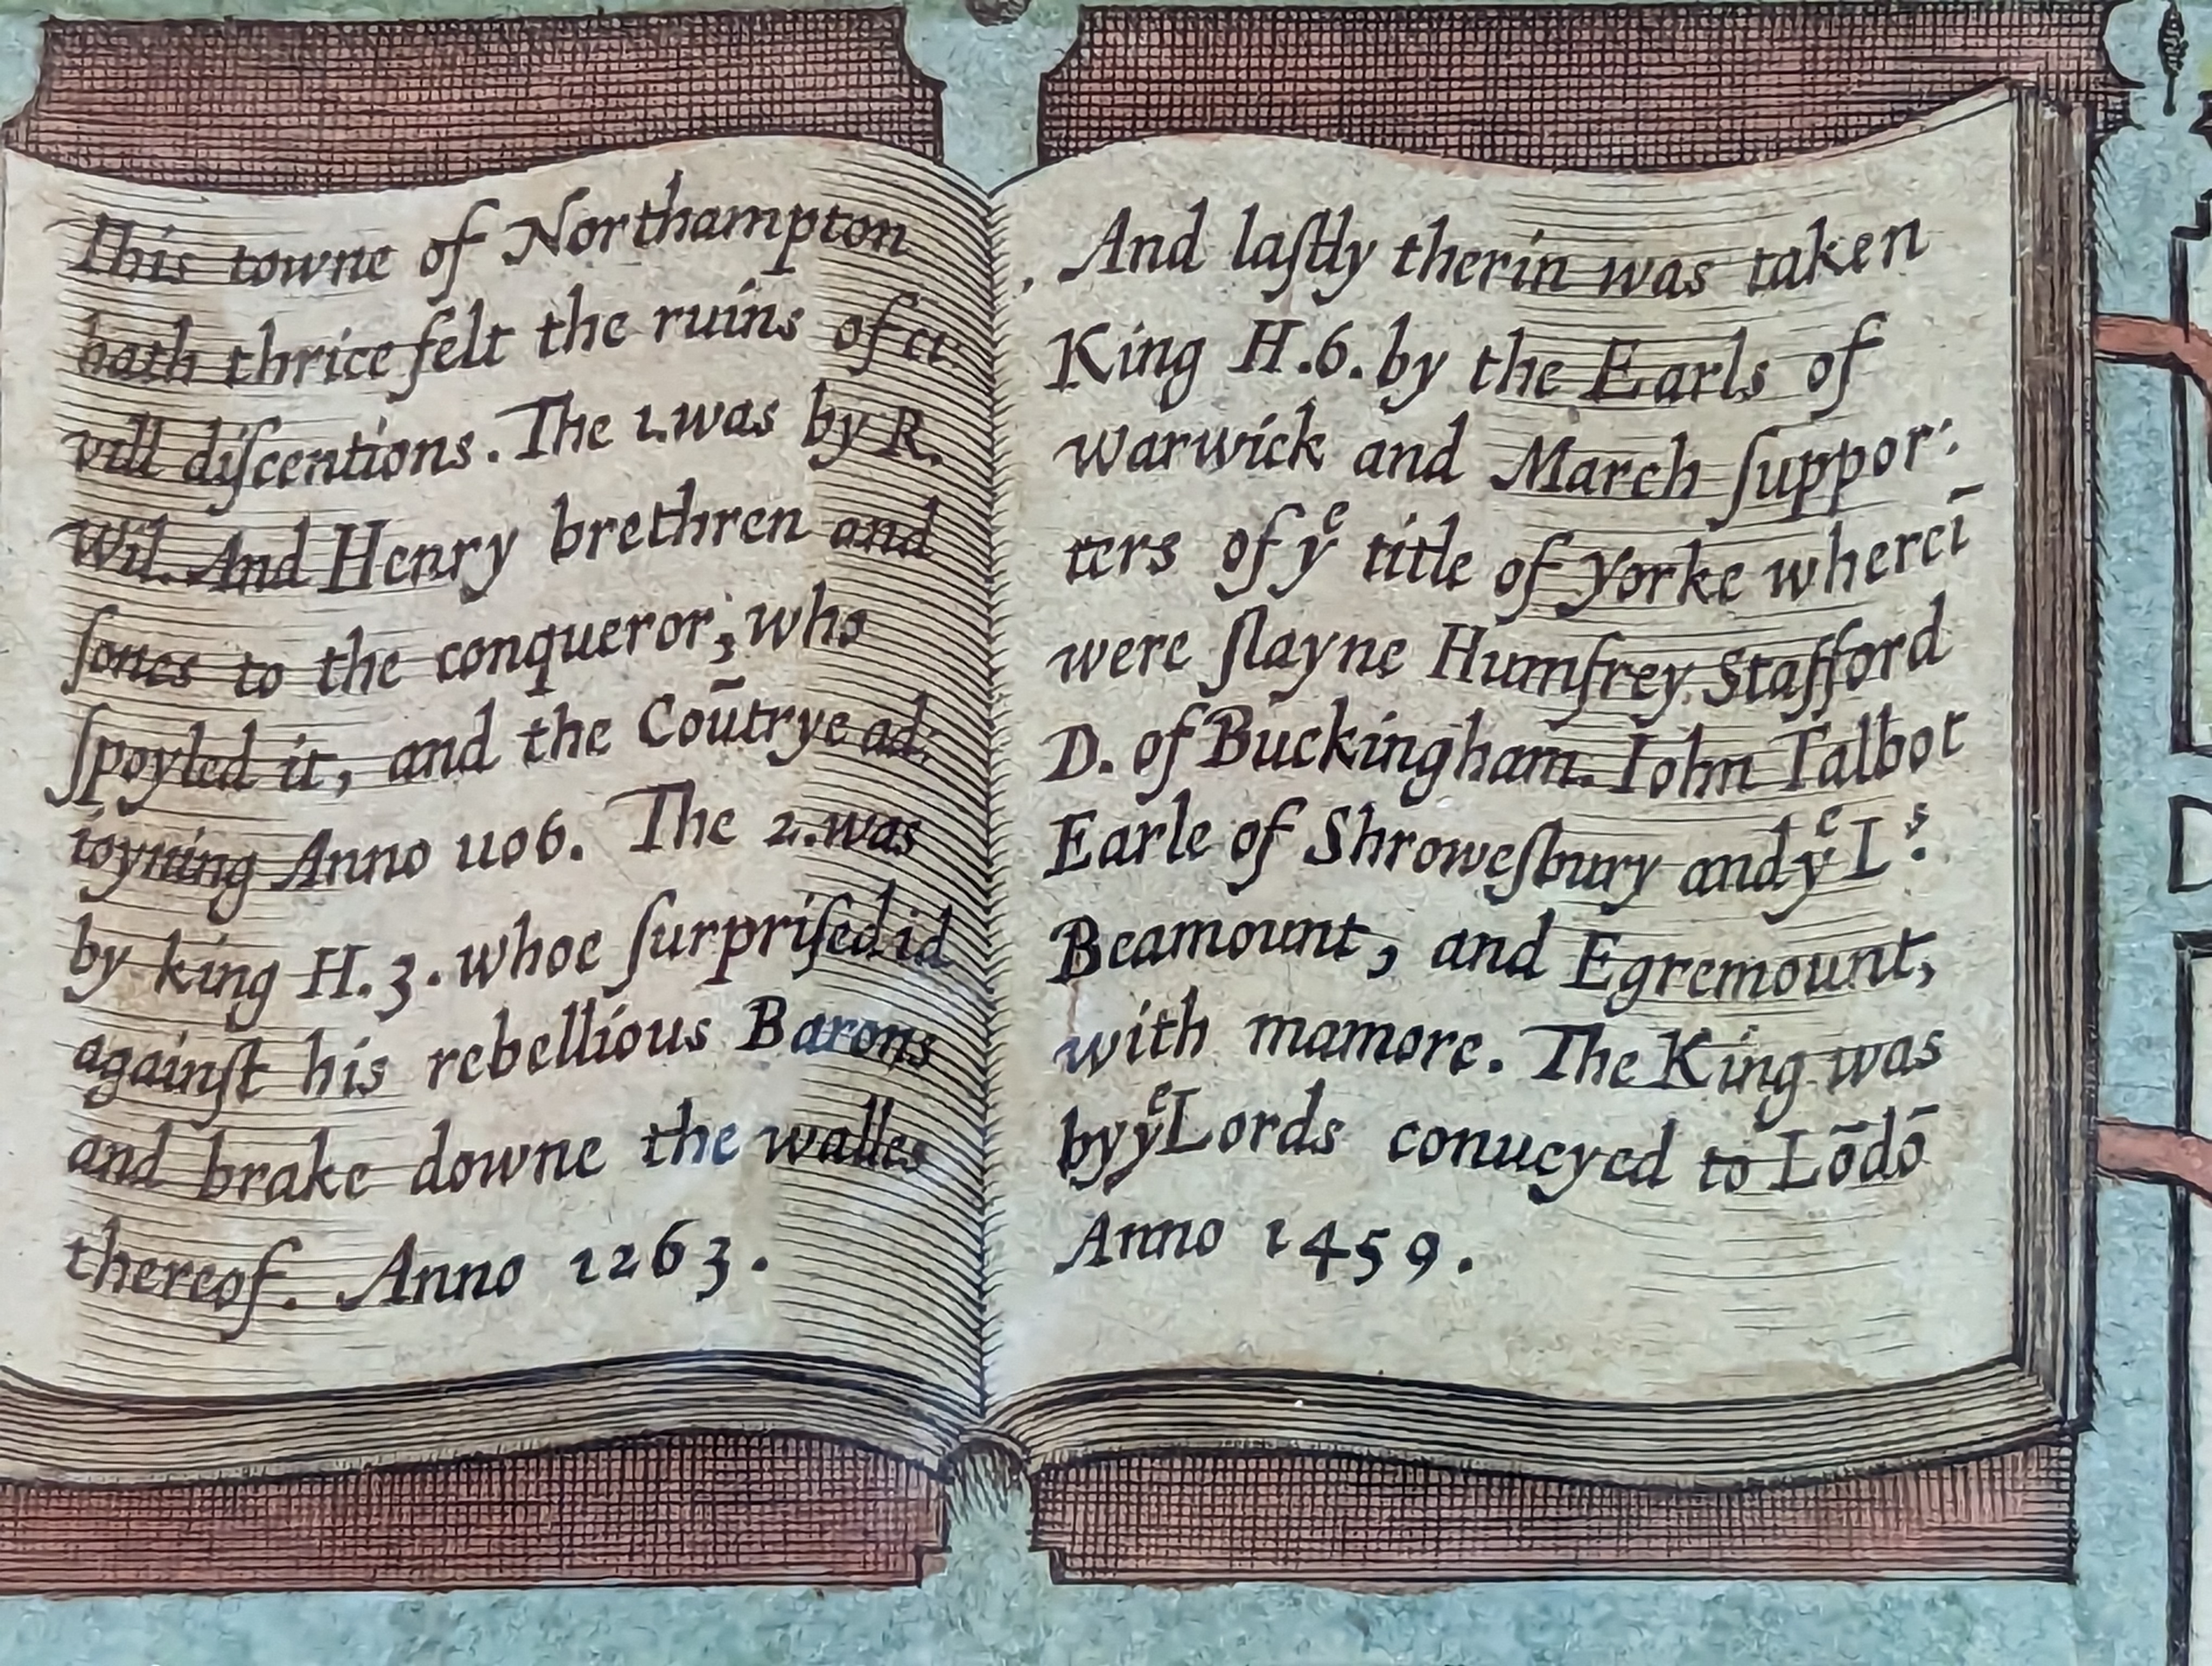 This towne of Northampton
hath thrice felt the ruins of ci:
vill diſcentions. The 1. was by R.
Wil. And Henry brethren and
ſones to the conqueror; who
ſpoyled it, and the Coūtrye ad:
ioyning Anno 1106. The 2. was
by king H. 3. whoe ſurpriſed id
againſt his rebellious Barons
and brake downe the walles
thereof. Anno 1263.
And laſtly therin was taken
King H. 6. by the Earls of
warwick and March ſuppor:
ters of yᵉ title of Yorke whereī
were ſlayne Humfrey Stafford
D. of Buckingham. Iohn Talbot
Earle of Shroweſbury and yᵉ Lˢ.
Beamount, and Egremount,
with mamore. The King was
by yᵉ Lords conueyed to Lōdō
Anno 1459.